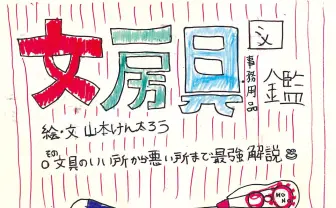 文房具図鑑
事務用品
絵・文 山本けんたろう
その文具のいい所から悪い所まで最強解説
MONO